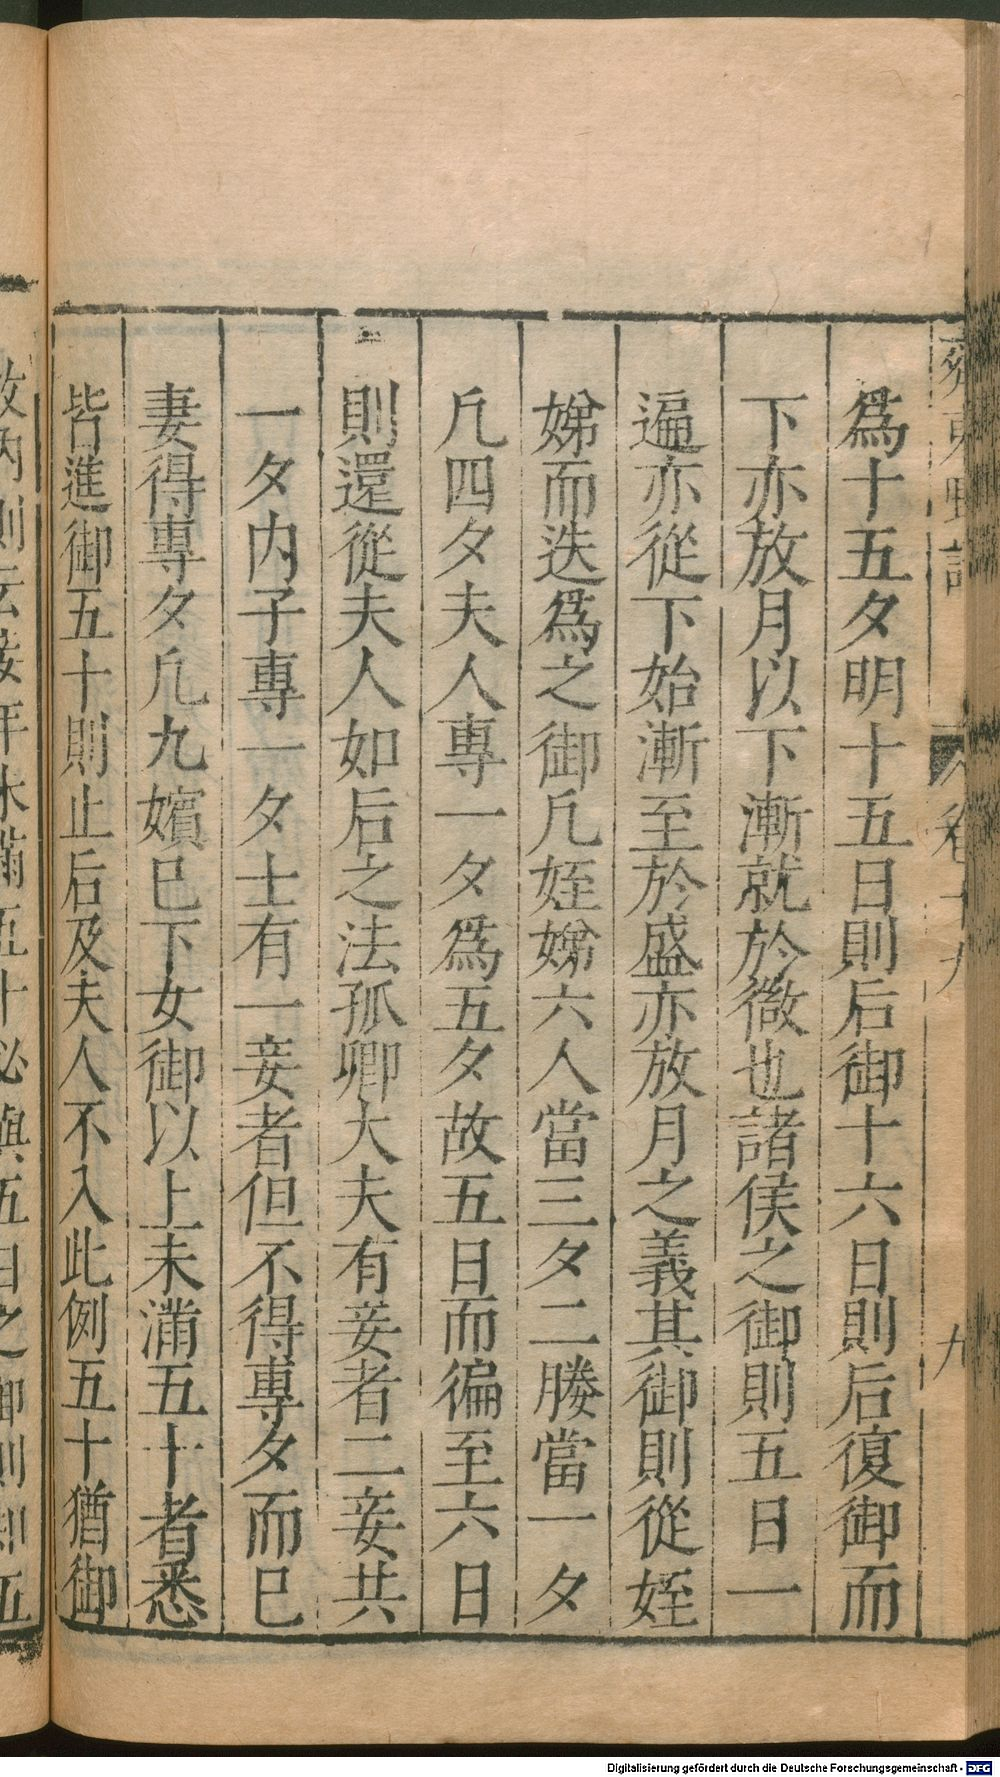 爲十五夕明十五日則后御十六日則后復御而
下亦放月以下漸就於微也諸侯之御則五日一
遍亦從下始漸至於盛亦放月之義其御則從姪
娣而迭爲之御凢姪娣六人當三夕二媵當一夕
凢四夕夫人專一夕爲五夕故五日而徧至六日
則還從夫人如后之法孤卿大夫有妾者二妾共
一夕内子專一夕士有一妾者但不得專夕而巳
妻得專夕凢九嬪巳下女御以上未滿五十者悉
皆進御五十則止后及夫人不入此例五十猶御
故内則云妾年未滿五十必與五日之御則
卷十九
九
Digitalisierung gefördert durch die Deutsche Forschungsgemeinschaft - DFG